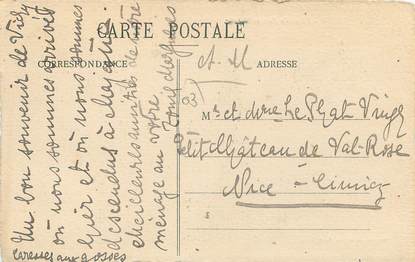 CARTE POSTALE
CORRESPONDANCE
ADRESSE
Un bon souvenir de Vichy
où nous sommes arrivés
hier et où nous sommes
descendus à
meilleures amitiés de notre
ménage au vôtre
caresses aux gosses
Mr et Mme Le Phat Vinh
Petit Château de Val-Rose
Nice - Cimiez